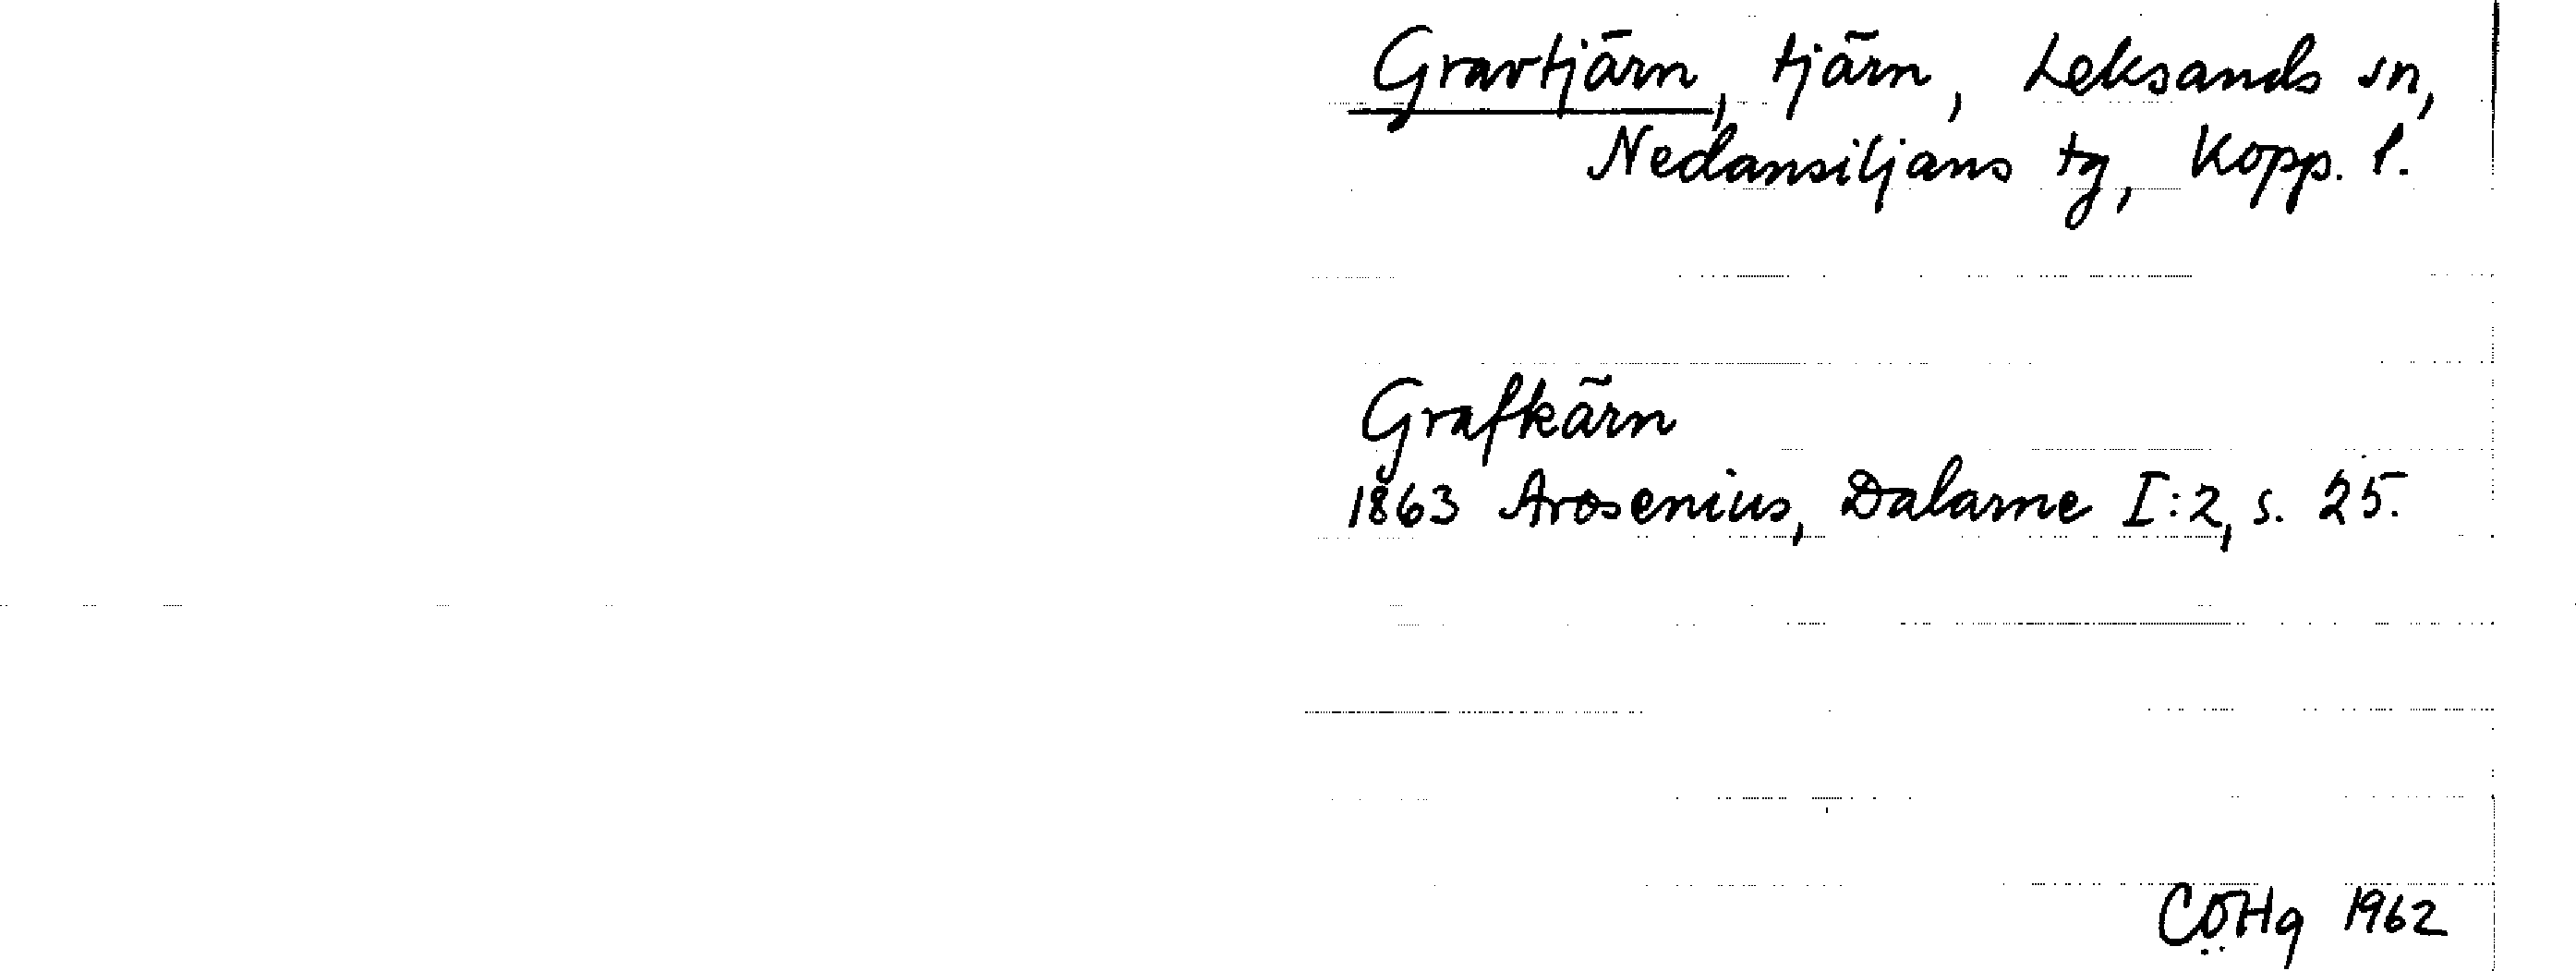 Gravtjärn, tjärn, Leksands sn,
Nedansiljans tg, Kopp. l.
Grafkärn
1863 Arosenius, Dalarne I:2, s. 25.
COHg 1962